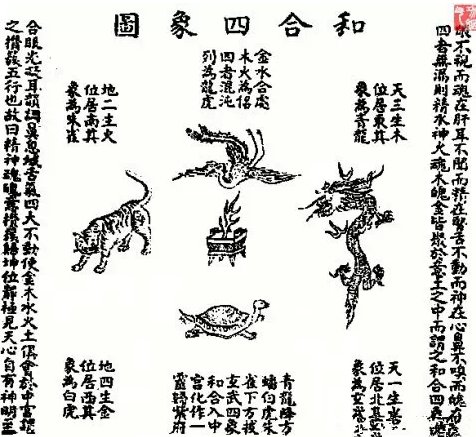 和合四象圖
不視而魂在肝耳不聞而精在腎舌不動而神在心鼻不嗅而魄
四者無漏則精水神火魂木魄金皆聚於意土之中而謂之和合四象
天三生木
位居東其
象為青龍
金水合處
木火為侶
四者混沌
列為龍虎
地二生火
位居南其
象為朱雀
天一生
位居北其
象為玄武
青龍降
蟠伯虎朱
雀下方披
玄武四象
和合入中
宮化作一
靈歸紫府
地四生金
位居西其
象為白虎
合眼光凝耳韻調鼻息緘舌氣四大不動使金木水火土俱會於中宮謂
之攢簇五行也故曰精神魂魄意攢簇歸坤位靜極見天心自有神明至